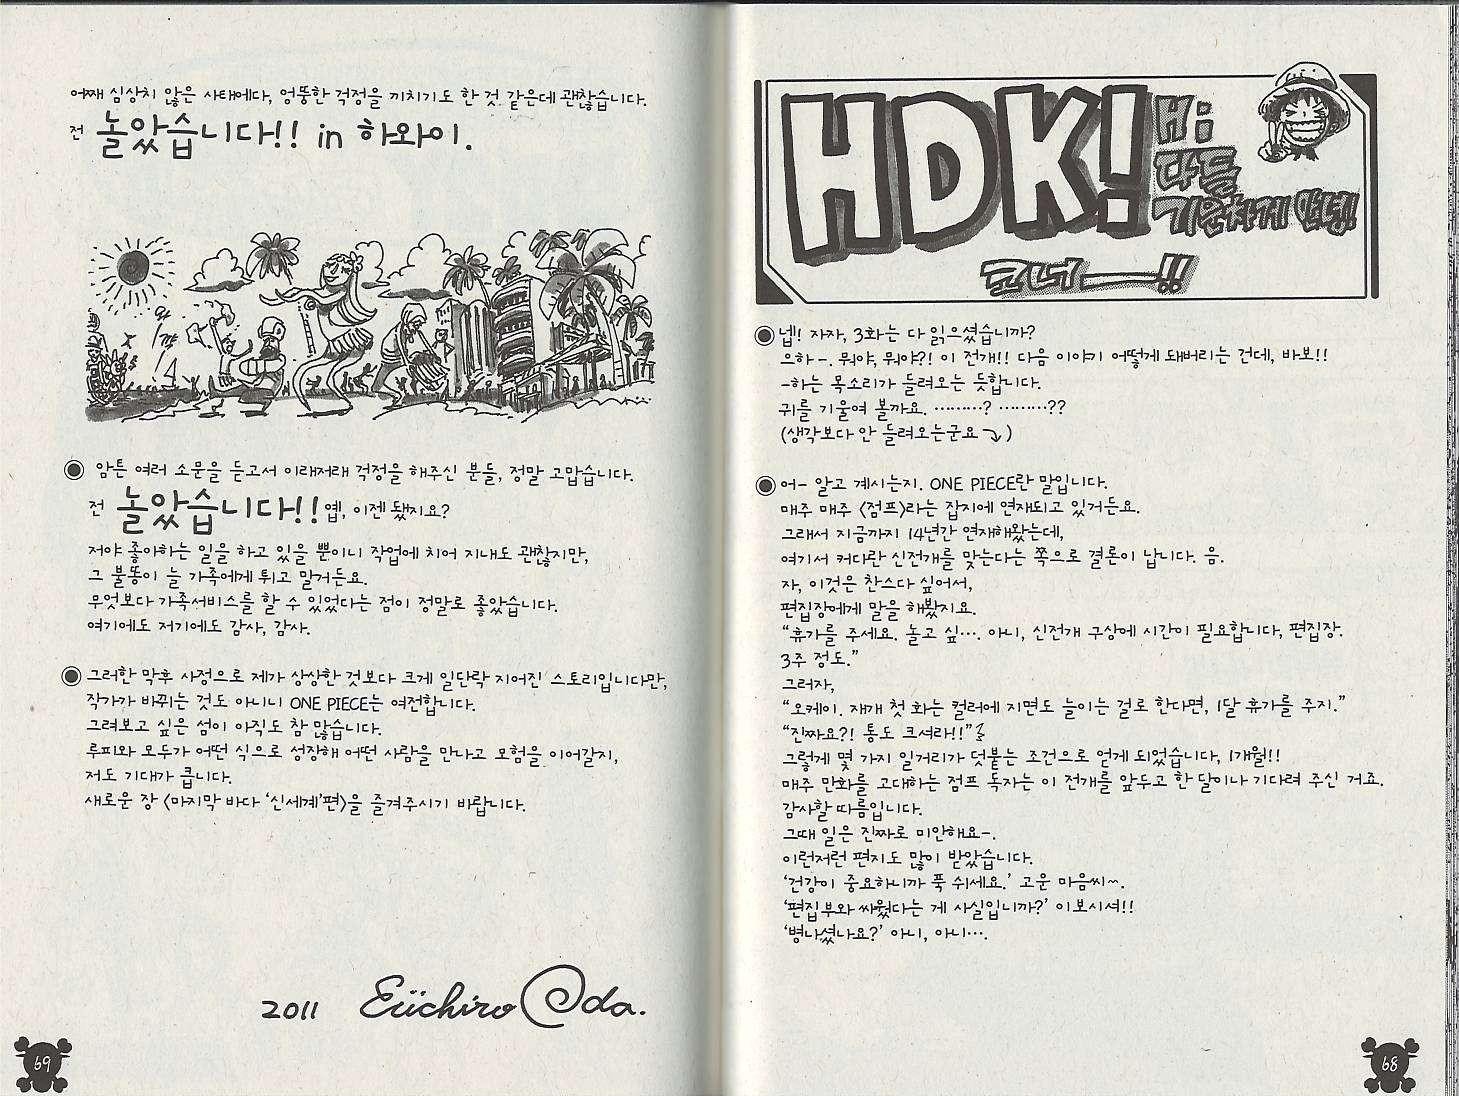 HDK!
Hi
다들
기운차게 안녕!
코너ㅡ!!
넵! 자자, 3화는 다 읽으셨습니까?
으하-. 뭐야, 뭐야?! 이 전개!! 다음 이야기 어떻게 돼버리는 건데, 바보!!
-하는 목소리가 들려오는 듯합니다.
귀를 기울여 볼까요. ………? ………??
(생각보다 안 들려오는군요↴)
어- 알고 계시는지. ONE PIECE란 말입니다.
매주 매주 〈점프〉라는 잡지에 연재되고 있거든요.
그래서 지금까지 14년간 연재해왔는데,
여기서 커다란 신전개를 맞는다는 쪽으로 결론이 납니다. 음.
자, 이것은 찬스다 싶어서,
편집장에게 말을 해봤지요.
“휴가를 주세요. 놀고 싶…. 아니, 신전개 구상에 시간이 필요합니다, 편집장.
3주 정도.”
그러자,
“오케이. 재개 첫 화는 컬러에 지면도 늘이는 걸로 한다면, 1달 휴가를 주지.”
“진짜요?! 통도 크셔라!!”
그렇게 몇 가지 일거리가 덧붙는 조건으로 얻게 되었습니다, 1개월!!
매주 만화를 고대하는 점프 독자는 이 전개를 앞두고 한 달이나 기다려 주신 거죠.
감사할 따름입니다.
그때 일은 진짜로 미안해요-.
이런저런 편지도 많이 받았습니다.
‘건강이 중요하니까 푹 쉬세요.’ 고운 마음씨~.
‘편집부와 싸웠다는 게 사실입니까?’ 이보시셔!!
‘병나셨나요?’ 아니, 아니….
68
어째 심상치 않은 사태에다, 엉뚱한 걱정을 끼치기도 한 것 같은데 괜찮습니다.
전 놀았습니다!! in 하와이.
암튼 여러 소문을 듣고서 이래저래 걱정을 해주신 분들, 정말 고맙습니다.
전 놀았습니다!! 옙, 이젠 됐지요?
저야 좋아하는 일을 하고 있을 뿐이니 작업에 치어 지내도 괜찮지만,
그 불똥이 늘 가족에게 튀고 말거든요.
무엇보다 가족서비스를 할 수 있었다는 점이 정말로 좋았습니다.
여기에도 저기에도 감사, 감사.
그러한 막후 사정으로 제가 상상한 것보다 크게 일단락 지어진 스토리입니다만,
작가가 바뀌는 것도 아니니 ONE PIECE는 여전합니다.
그려보고 싶은 섬이 아직도 참 많습니다.
루피와 모두가 어떤 식으로 성장해 어떤 사람을 만나고 모험을 이어갈지,
저도 기대가 큽니다.
새로운 장 〈마지막 바다 ‘신세계’편〉을 즐겨주시기 바랍니다.
2011 Eiichiro Oda.
69